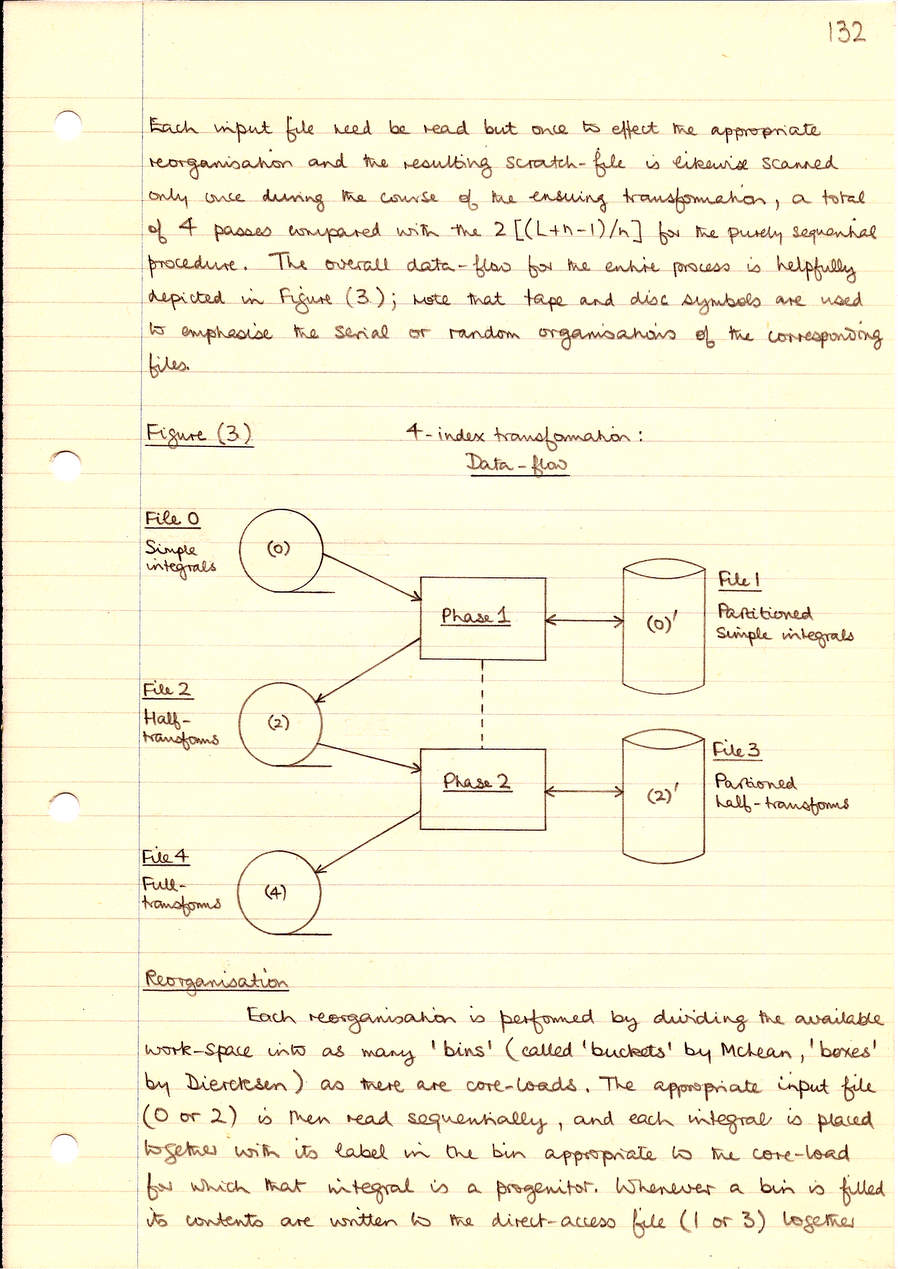 132
Each input file need be read but once to effect the appropriate
reorganisation and the resulting scratch-file is likewise scanned
only once during the course of the ensuing transformation, a total
of 4 passes compared with the 2 [(L+n-1)/n] for the purely sequential
procedure. The overall data-flow for the entire process is helpfully
depicted in Figure (3); note that tape and disc symbols are used
to emphasise the serial or random organisations of the corresponding
files.
Figure (3)
4-index transformation:
Data-flow
File 0
Simple
integrals
(0)
Phase 1
(0)'
File 1
Partitioned
simple integrals
File 2
Half-
transforms
(2)
Phase 2
(2)'
File 3
Partioned
half-transforms
File 4
Full-
transforms
(4)
Reorganisation
Each reorganisation is performed by dividing the available
work-space into as many 'bins' (called 'buckets' by McLean, 'boxes'
by Diercksen) as there are core-loads. The appropriate input file
(0 or 2) is then read sequentially, and each integral is placed
together with its label in the bin appropriate to the core-load
for which that integral is a progenitor. Whenever a bin is filled
its contents are written to the direct-access file (1 or 3) together